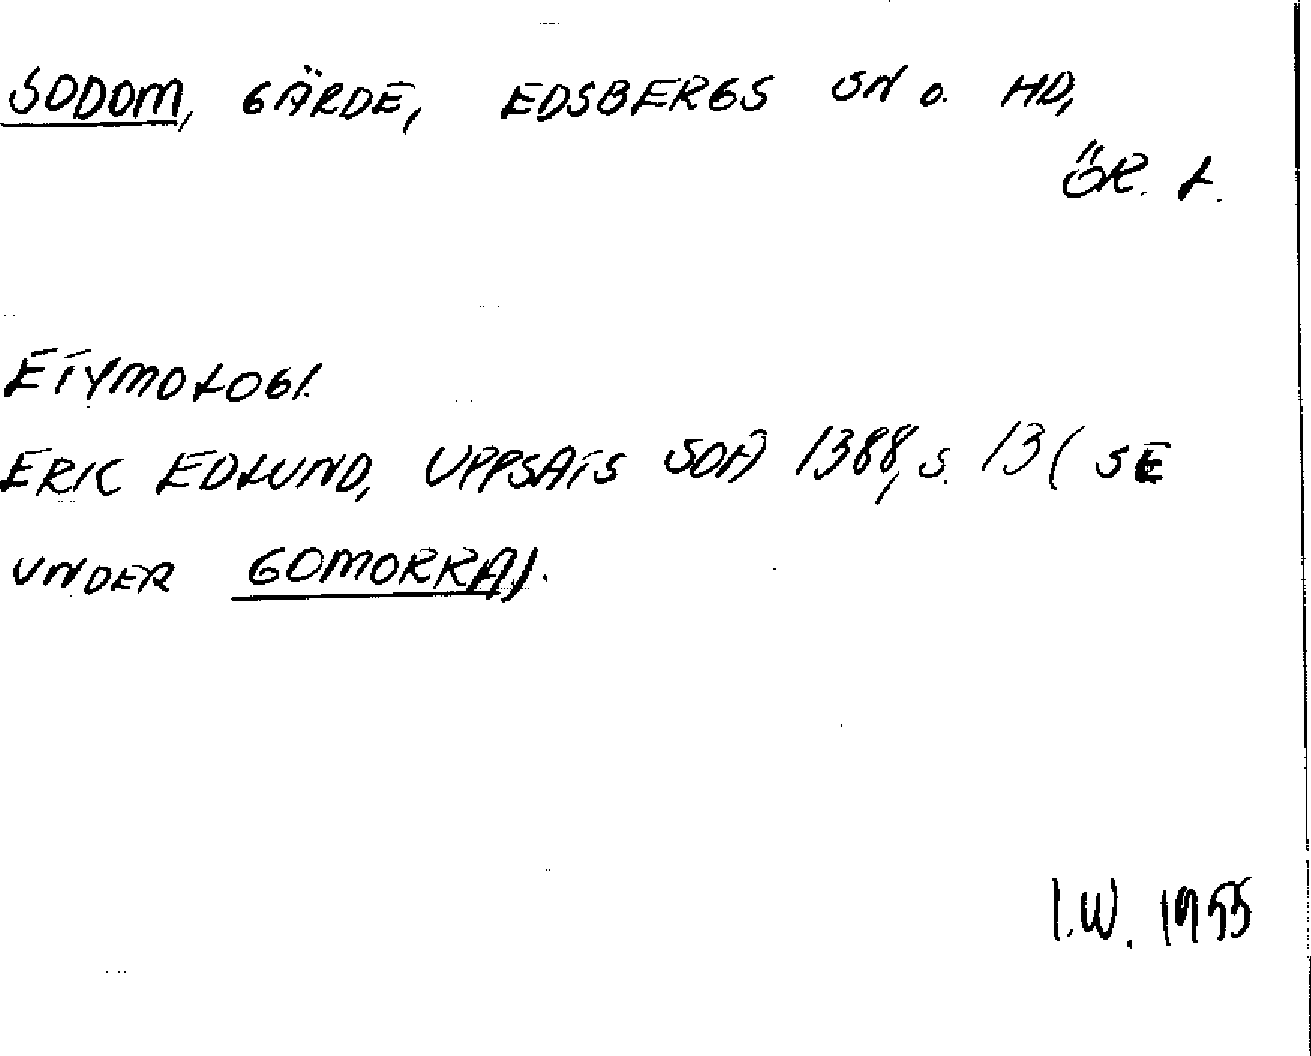 SODOM, GÄRDE, EDSBERGS SN O. HD,
ÖR. L.
ETYMOLOGI.
ERIC EDLUND, UPPSATS SOA 1388, S. 13 (SE
UNDER GOMORRA).
I.W. 1955